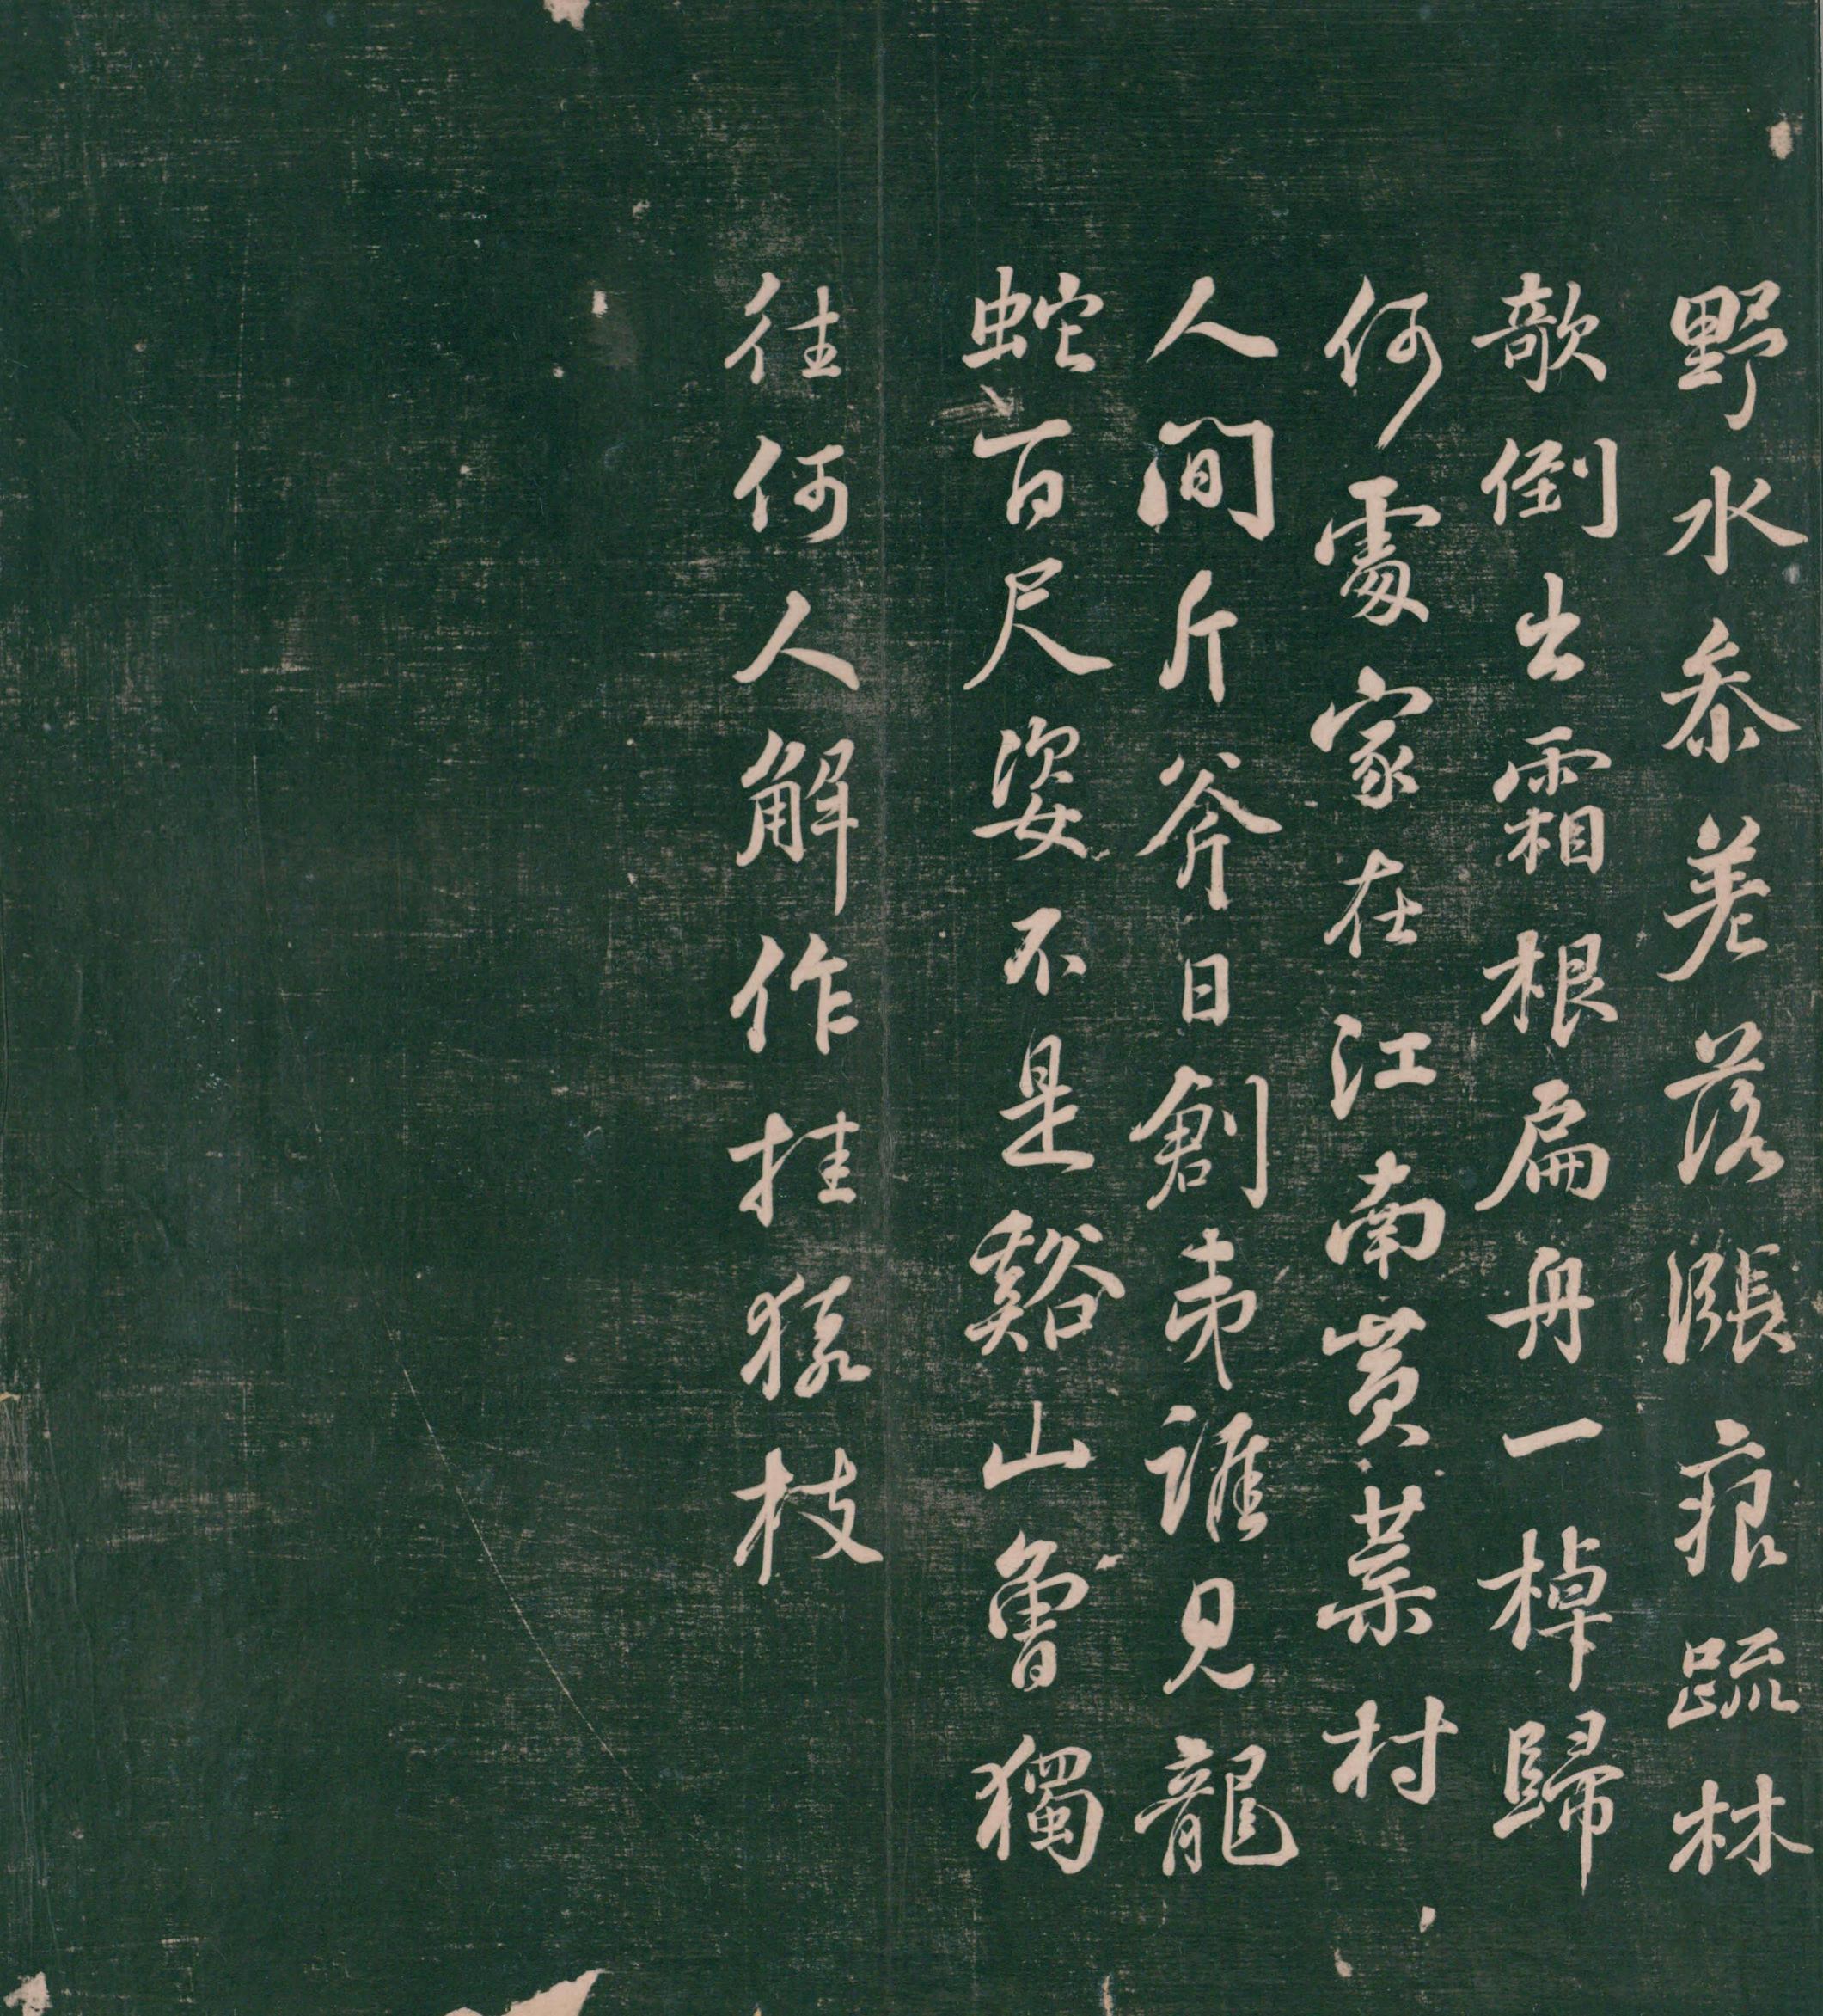 野水叅差落漲痕踈林
欹倒出霜根扁舟一棹歸
何處家在江南黄葉村
人間斤斧日創夷誰見龍
蛇百尺姿不是谿山曽獨
徃何人解作挂猿枝